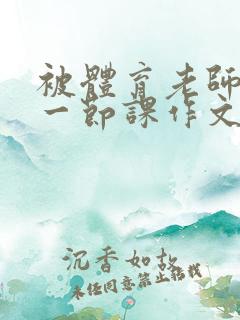 被體育老師
一節課作文
沉香如故
未经同意禁止搭载